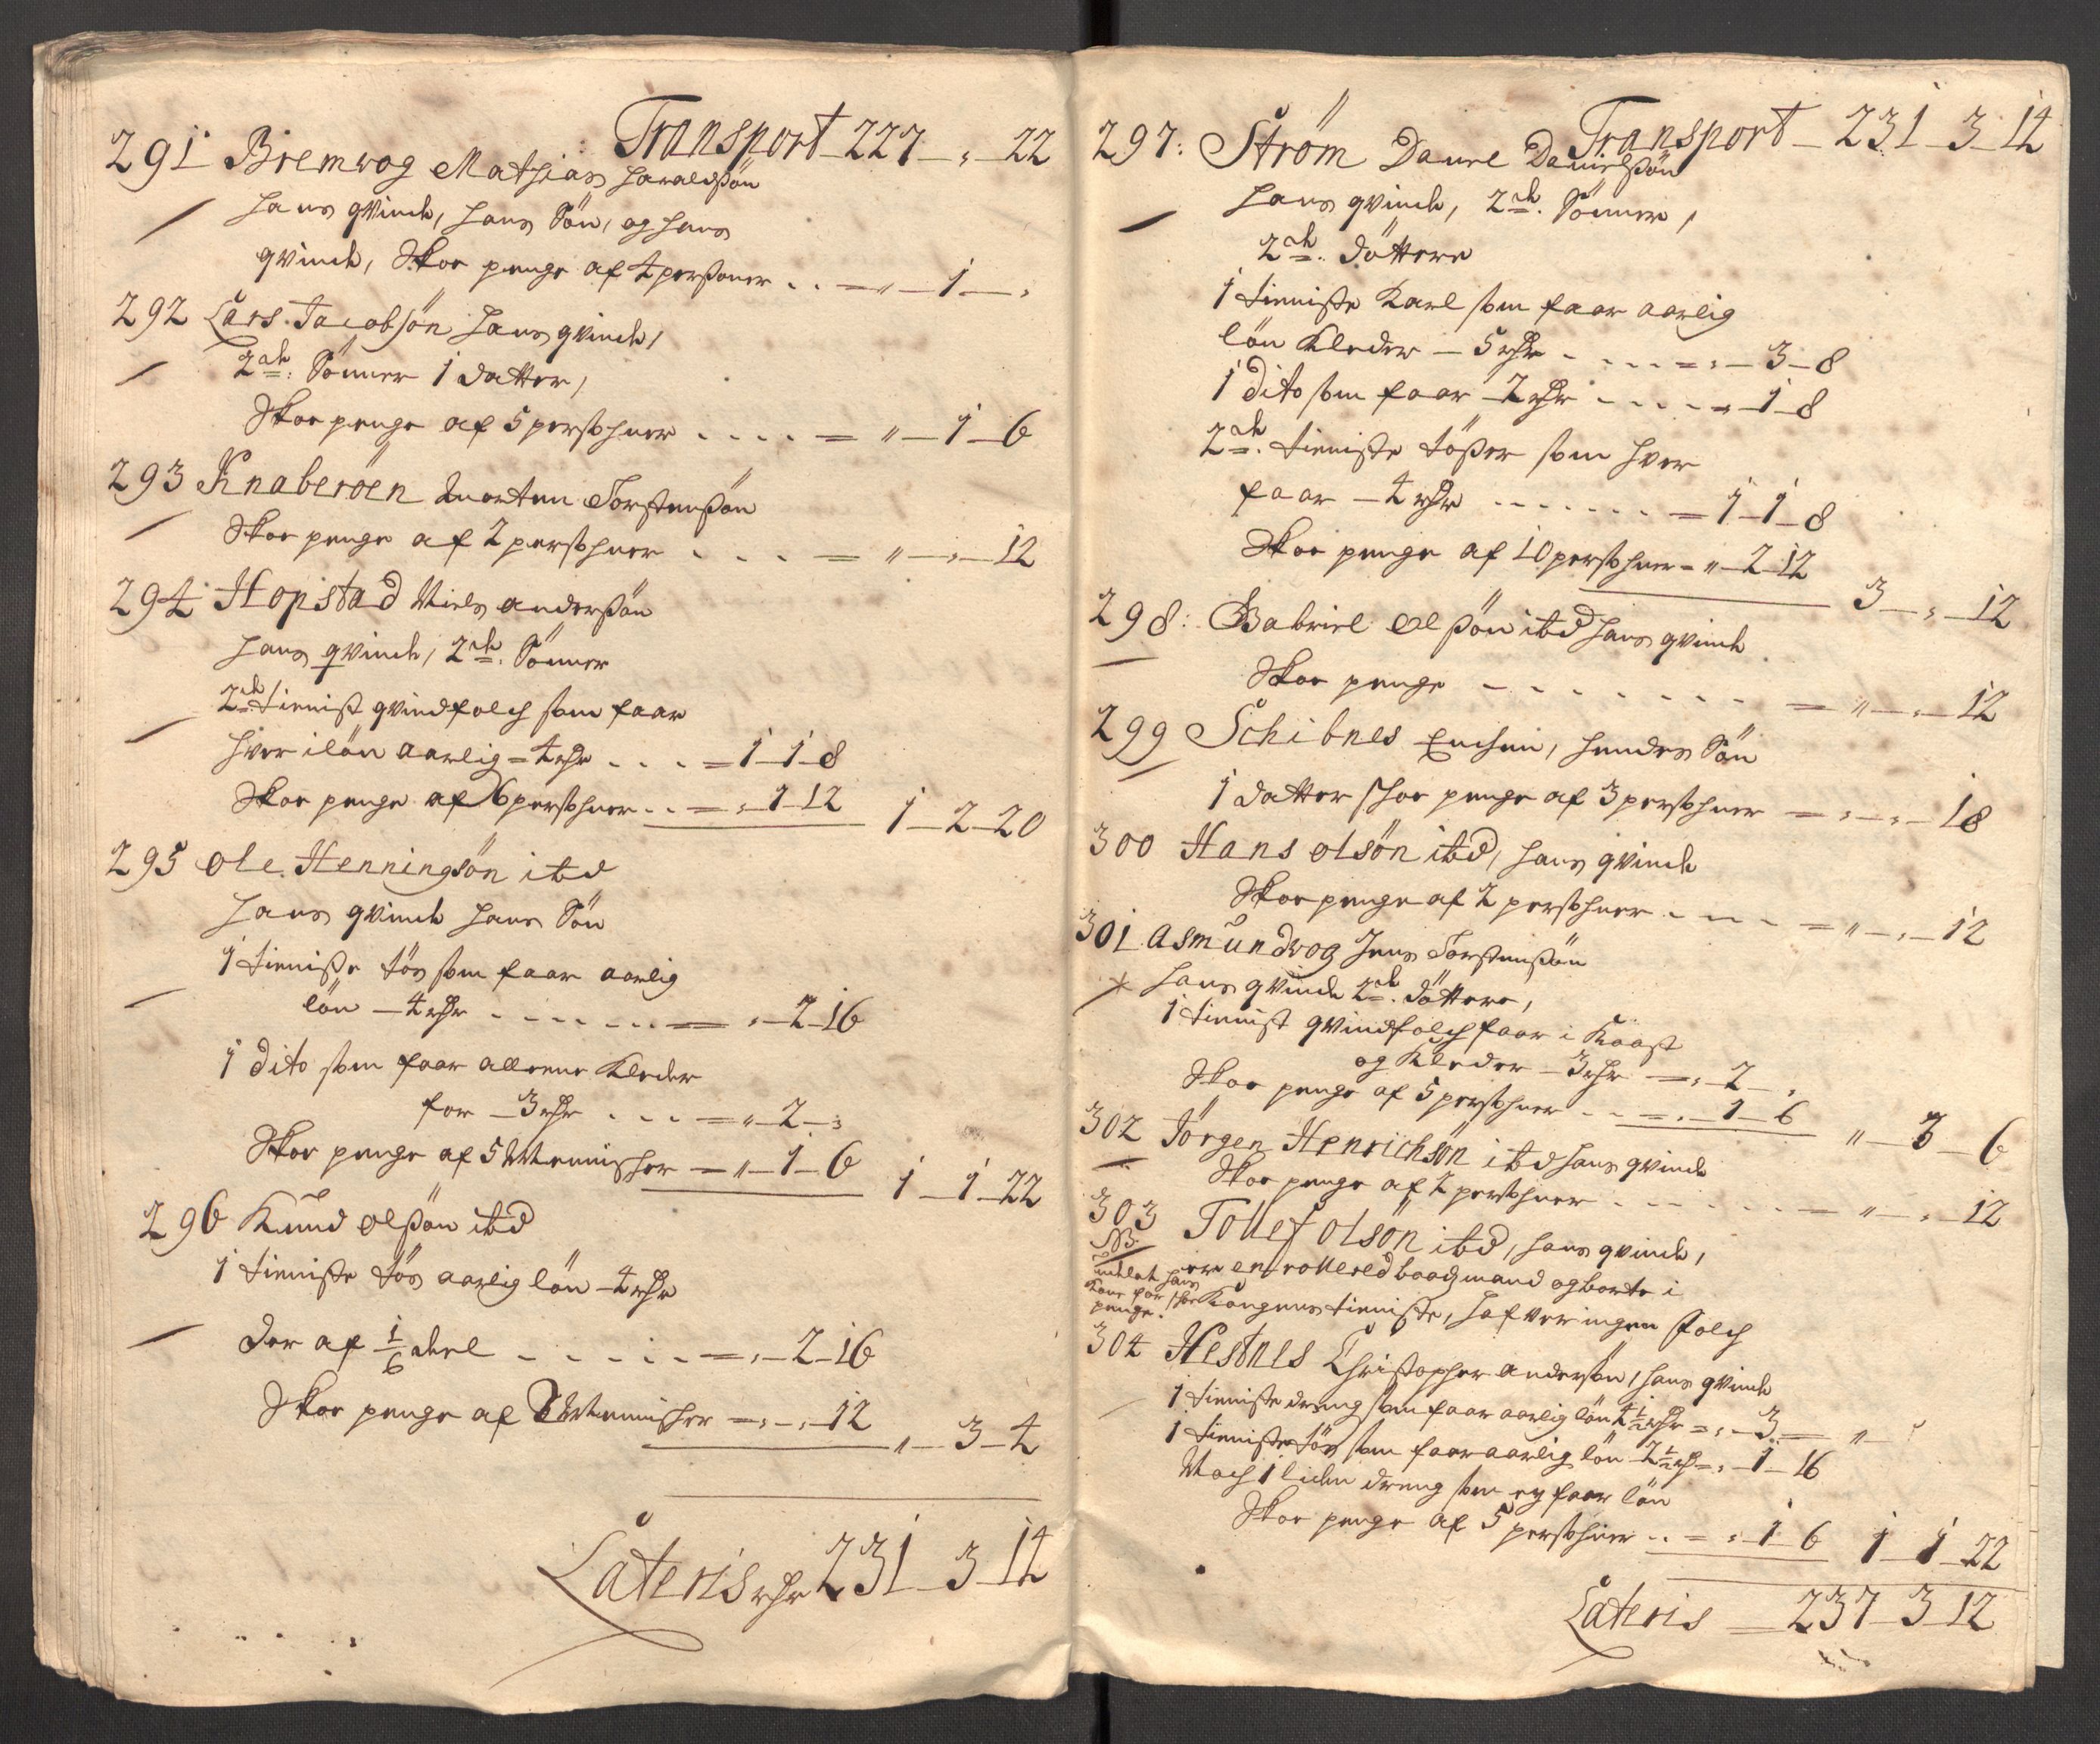 Transport 227 - " - 22
291 Bremvog Mathias Haraldßøn
hans qvinde, hans Søn, og hans
qvinde, Skoe penge af 4 personer . . = " - 1 - "
292 Lars Jacobsøn hans qvinde,
2de Sønner 1 datter,
Skoe penge af 5 persohner . . . . = " - 1 - 6
293 Knaberöen Morten Torstenßøn
Skoe penge af 2 persohner . . . = " - " - 12
294 Hopstad Niels Anderßøn
hans qvinde, 2de Sønner
2de tieniste qvindfolch som faar
hver i løn aarlig = 4 rdr . . . = 1 - 1 - 8
Skoe penge af 6 persohner . . = " - 1 - 12 1 - 2 - 20
295 Ole Henningsøn ibd
hans qvinde hans Søn
1 tieniste tøs som faar aarlig
løn - 4 rdr . . . . . . = " - 2 - 16
1 dito som faar alleene Kleder
for - 3 rdr . . . = " - 2 - "
Skoe penge af 5 Mennischer = " - 1 - 6 1 - 1 - 22
296 Knud Olßøn ibd
1 tieniste tøs aarlig løn - 4 rdr
der af 1/6 deel . . . . . = " - 2 - 16
Skoe penge af 2 Mennischer = " - " - 12 " - 3 - 4
Lateris rdr 231 - 3 - 14
Transport - 231 - 3 - 14
297: Strøm Daniel Danielßøn
hans qvinde, 2de Sønner,
2de døttere
1 tieniste Karl som faar aarlig
løn Kleder - 5 rdr . . . . = " - 3 - 8
1 dito som faar 2 rdr . . . . = " - 1 - 8
2de tieniste tøßer som hver
faar - 4 rdr . . . . . . . = 1 - 1 - 8
Skoe penge af 10 persohner = " - 2 - 12 3 - " - 12
298: Gabriel Olßøn ibd hans qvinde
Skoe penge - - - - - - - = " - " - 12
299 Schibnes Enchen, hendes Søn
1 datter schoe penge af 3 persohner = " - " - 18
300 Hans olsøn ibd, hans qvinde
Skoe penge af 2 persohner . - - - = " - " - 12
301 Asmundvog Jens Torstenßøn
hans qvinde 2de døttere,
1 tienist qvindfolch faar i Kaast
og Kleder - 3 rdr = " - 2 - "
Skoe penge af 5 persohner . . = " - 1 - 6 " - 3 - 6
302 Jørgen Henrichsøn ibd hans qvinde
Skoe penge af 2 persohner . . . . . . = " - " - 12
303 Tollef Olsøn ibd, hans qvinde,
NB. er enrollered baadzmand og borte i
hans Kone for skoe penge. Kongens tieniste, hafver ingen folch
304 Hestnes Christopher Andersøn, hans qvinde
1 tieniste dreng som faar aarlig løn 4½ rdr = " - 3 - "
1 tieniste tøs som faar aarlig løn 2½ rdr = " - 1 - 16
Noch 1 liden dreng som ey faar løn
Skoe penge af 5 persohner . . = " - 1 - 6 1 - 1 - 22
Lateris - 237 - 3 - 12